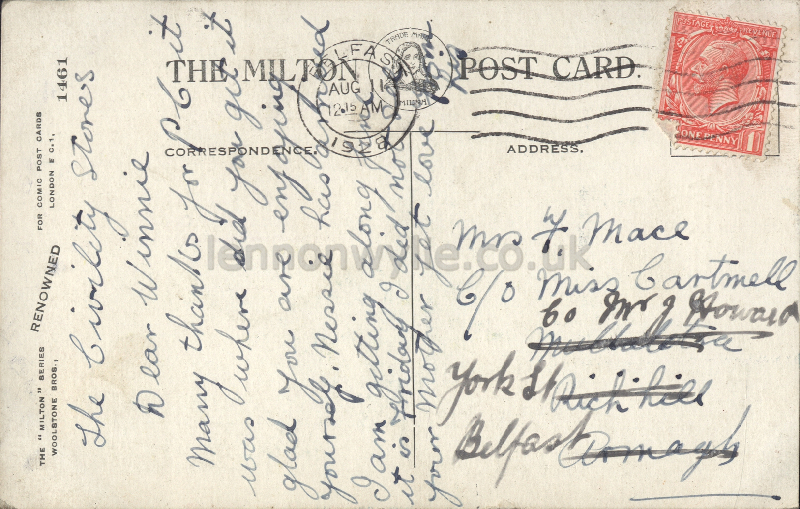 THE MILTON POST CARD.
TRADE MARK
MILTON
BELFAST
AUG 11
12.15 AM
1928
POSTAGE REVENUE
ONE PENNY
CORRESPONDENCE.
ADDRESS.
THE "MILTON" SERIES
WOOLSTONE BROS.,
RENOWNED
FOR COMIC POST CARDS
LONDON E C 1,
1461
The Civility Stores
Dear Winnie
Many thanks for P C it
was where did you get it
glad you are enjoying
yourself. Nessie has arrived
I am gitting along
it is Friday I did not
your Mother yet love
Mrs F. Mace
C/O Miss Cartmell
Co Mr J Howard
Mullalelish
York St Rich hill
Belfast Armagh
lennonwylie.co.uk